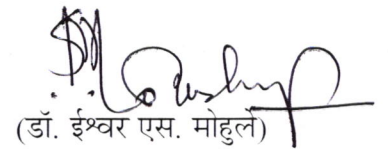 (डॉ. ईश्वर एस. मोहुर्ले)